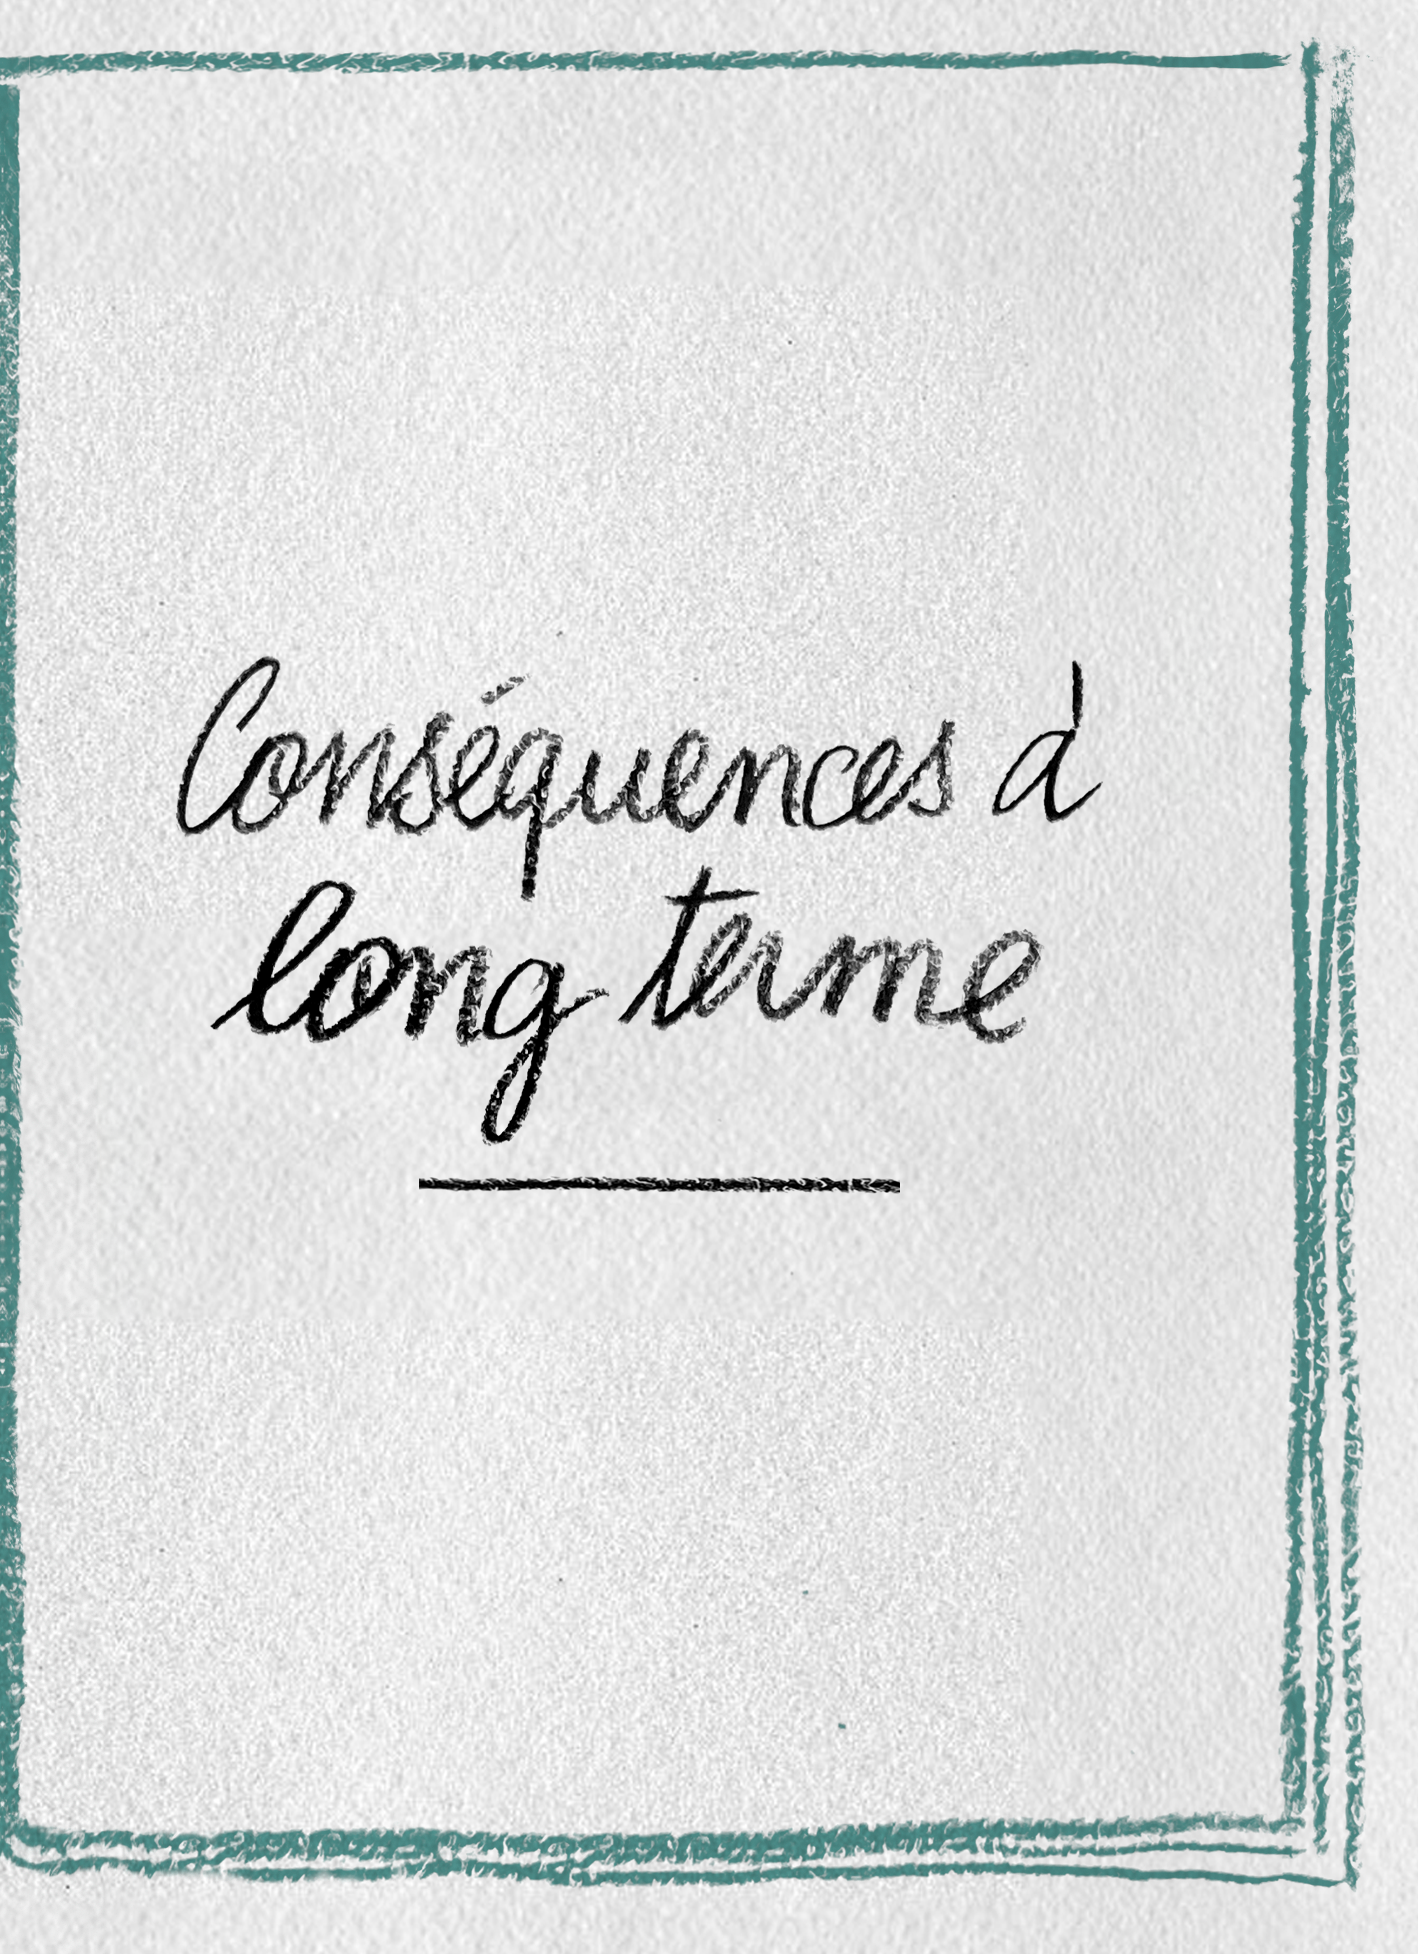 Conséquences à
long terme